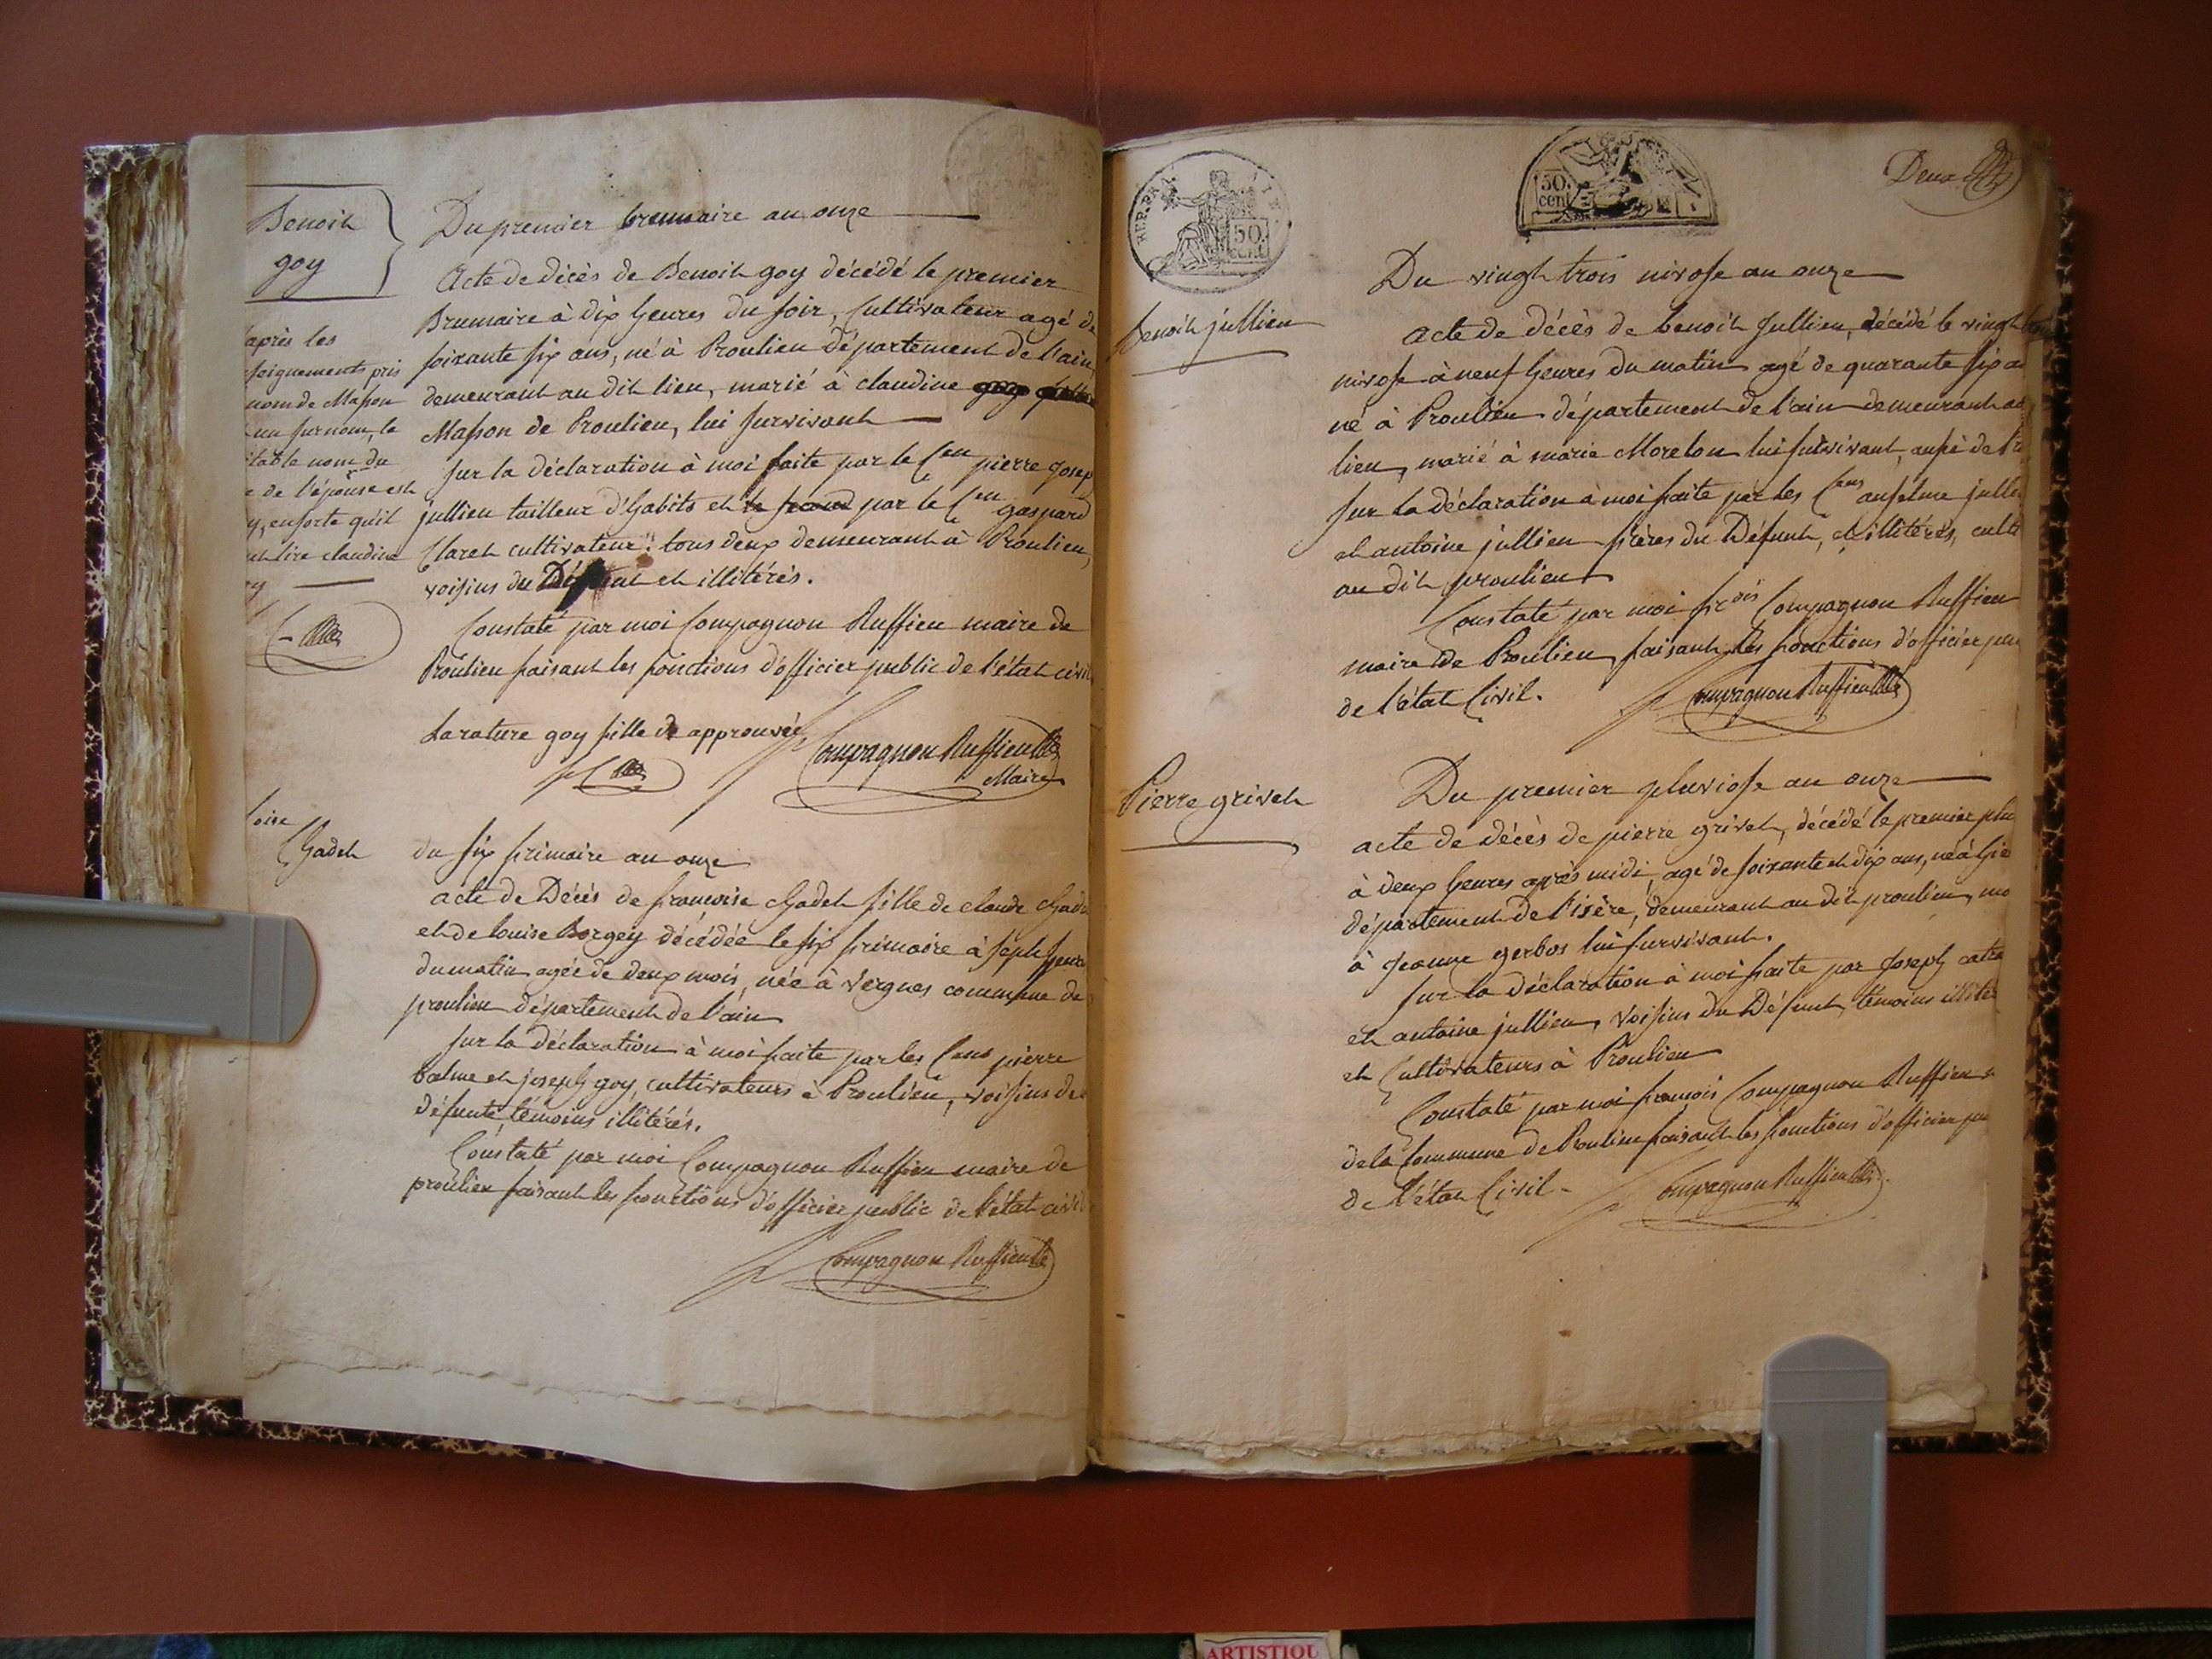 Benoit
goy
Du premier brumaire an onze
Acte de décès de Benoit goy décédé le premier
Brumaire à dix heures du soir, Cultivateur agé de
soixante six ans, né à Proulieu département de l'ain
demeurant au dit lieu, marié à claudine goy fille
Masson de Proulieu, lui survivant
sur la déclaration à moi faite par le Cen pierre josep
jullien tailleur d'habits et le second par le Cen gaspard
Claret cultivateur. tous deux demeurant à Proulieu,
voisins du Défunt et illitérés.
Constaté par moi Compagnon Ruffieu maire de
Proulieu faisant les fonctions d'officier public de l'état civil
La rature goy fille de approuvée
Compagnon Ruffieu
Maire
après les
seignements pris
nom de Masson
un surnom, le
itable nom du
e de l'épouse est
y, ensorte qu'il
ut lire claudine
oy
oise
Chadet
du six frimaire an onze
acte de Décès de francoise chadet fille de claude chade
et de louise Borgey décédée le six frimaire à sept heure
du matin agée de deux mois, née à vergnes commune de
proulieu département de l'ain
sur la déclaration à moi faite par les Cens pierre
balme et joseph goy, cultivateurs à Proulieu, voisins de
défunte, témoins illitérés.
Constaté par moi Compagnon Ruffieu maire de
proulieu faisant les fonctions d'officier public de l'état civil
Compagnon Ruffieu
REP. FRA.
50.
CENT.
50.
cent
Deux
Benoit jullien
Du vingt trois nivose an onze
acte de décès de benoit Jullien, décédé le vingt trois
nivose à neuf heures du matin agé de quarante six an
né à Proulieu département de l'ain demeurant au
lieu, marié à marie Morelon lui survivant,
sur la déclaration à moi faite par les Cens anselme jullie
et antoine jullien frères du Défunt, et illitérés, culti
au dit proulieu
Constaté par moi frcois Compagnon Ruffieu
maire de Proulieu faisant les fonctions d'officier pu
de l'état Civil.
Compagnon Ruffieu
Pierre grivet
Du premier pluviose an onze
acte de décès de pierre grivet, décédé le premier plu
à deux heures après midi, agé de soixante et dix ans, né à hie
département de l'isère, demeurant au dit proulieu, ma
à Jeanne gerbos lui survivant.
sur la déclaration à moi faite par Joseph
et antoine jullien, voisins du Défunt, témoins illité
et Cultivateurs à Proulieu
Constaté par moi françois Compagnon Ruffieu
de la Commune de Proulieu faisant les fonctions d'officier pu
de l'état Civil.
Compagnon Ruffieu
ARTISTIQU